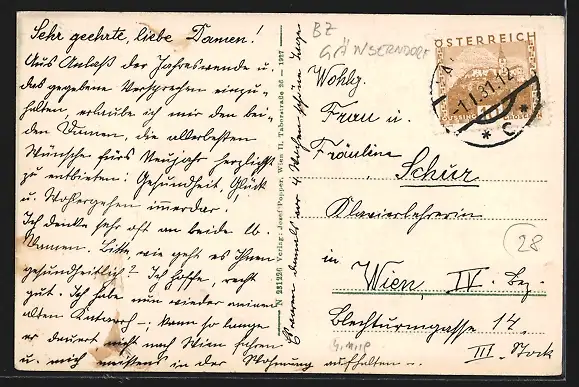 Sehr geehrte, liebe Damen!
Aus Anlaß der Jahreswende u.
das gegebene Versprechen einzu-
halten, erlaube ich mir den bei-
den Damen, die allerbesten
Wünsche fürs Neujahr herzlichst
zu entbieten: Gesundheit, Glück
u. Wohlergehen immerdar!
Ich denke sehr oft an beide lb.
Damen. Bitte, wie geht es Ihnen
gesundheitlich? Ich hoffe, recht
gut. Ich habe nun wieder meinen
alten -, kann so lange
er dauert nicht nach Wien fahren
u. mich meistens in der Wohnung aufhalten -.
vor 4 Wochen schöne Tage
N 231226 Verlag: Josef Popper, Wien II, Taborstraße 36 — 1927
BZ
GÄNSERNDORF
ÖSTERREICH
GROSCHEN
1.I.31.12
* C *
Wohlg.
Frau u.
Fräulein
Schur
Klavierlehrerin
in
Wien, IV. Bez.
Blechturmgasse 14.
III. Stock
28